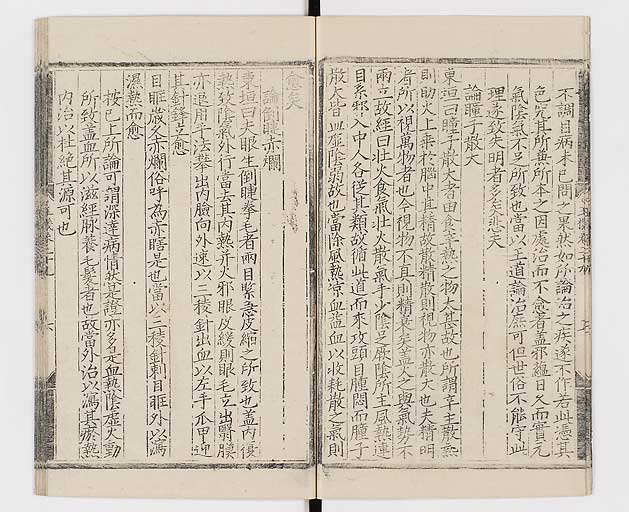 不調目病未已問之果然如所論治之疾遂不作若此憑其
色究其所無所本之因處治而不愈者蓋邪蘊日久而實元
氣陰氣不足所致也當以王道論治庶可但世俗不能守此
理遂致失明者多矣悲夫
論瞳子散大
東垣曰瞳子散大者由食辛熱之物太甚故也所謂辛主散熱
則助火上乘於腦中其精故散精散則視物亦散大也夫精明
者所以視萬物者也今視物不真則精衰矣蓋火之與氣勢不
兩立故經曰壯火食氣壯火散氣手少陰足厥陰所主風熱連
目系邪人中人各從其類故循此道而來攻頭目腫悶而瞳子
散大皆血虛陰弱故也當除風熱涼血益血以收耗散之氣則
愈矣
論倒睫赤爛
東垣曰夫眼生倒睫拳毛者兩目緊急皮縮之所致也蓋內復
熱致陰氣外行當去其內熱并火邪眼皮緩則眼毛立出翳膜
亦退用手法攀出內瞼向外速以三稜針出血以左手爪甲迎
其針鋒立愈
目眶歲久赤爛俗呼為赤瞎是也當以三稜針刺目眶外以瀉
濕熱而愈
按已上所論可謂深達病情然是證亦多是血熱陰虛火動
所致蓋血所以滋經脉養毛髮者也故當外治以瀉其瘀熱
內治以杜絕其源可也